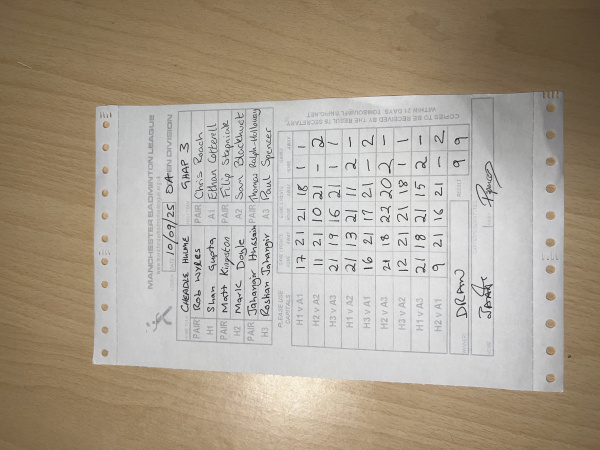 MANCHESTER BADMINTON LEAGUE
OPEN DIVISION
10/09/25 DA
CHEADLE HULME GHAP 3
PAIR Rob Wyles PAIR Chris Roach
H1 Shan Gupta A1 Ethan Cotterell
PAIR Matt Kingston PAIR Filip Stepniak
H2 Mark Doyle A2 Sam Blackhurst
PAIR Jahangir Hussain PAIR Thomas
H3 Roshan Jahangir A3 Paul Spencer
PLEASE USE
CAPITALS
H1 v A1 17 21 21 18 1 1
H2 v A2 11 21 10 21 - 2
H3 v A3 21 19 16 21 1 1
H1 v A2 21 13 21 11 2 -
H3 v A1 16 21 17 21 - 2
H2 v A3 21 18 22 20 2 -
H3 v A2 12 21 21 18 1 1
H1 v A3 21 18 21 15 2 -
H2 v A1 9 21 16 21 - 2
DRAWN RESULT 9 9
COPIES TO BE RECEIVED BY THE RESULTS SECRETARY
WITHIN 21 DAYS